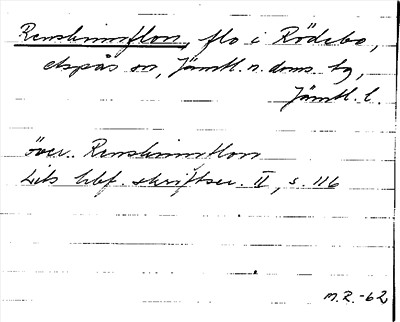 Renskinnflon, flo i Rödebo,
utspås on, Jämtl. n. doms. tg,
Jämtl. l.
över. Renskinnflon
Lits hbf. skriftser. II, s. 116
M.R.-62